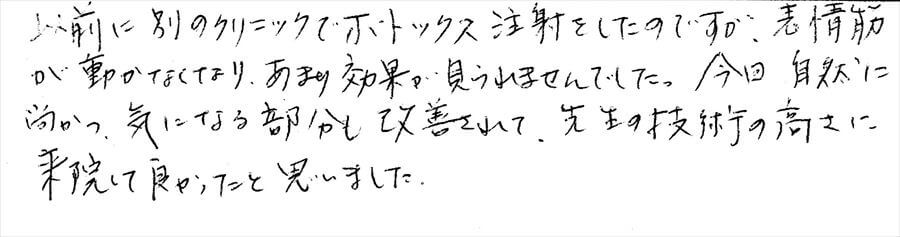 以前に別のクリニックでボトックス注射をしたのですが、表情筋
が動かなくなり、あまり効果が見られませんでした。今回 自然に
尚かつ、気になる部分も改善されて、先生の技術の高さに
来院して良かったと思いました。